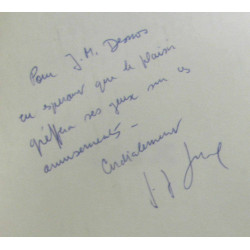 Pour J.M. Demos
en espérant que le plaisir
greffera ses yeux sur ces
amusements —
Cordialement